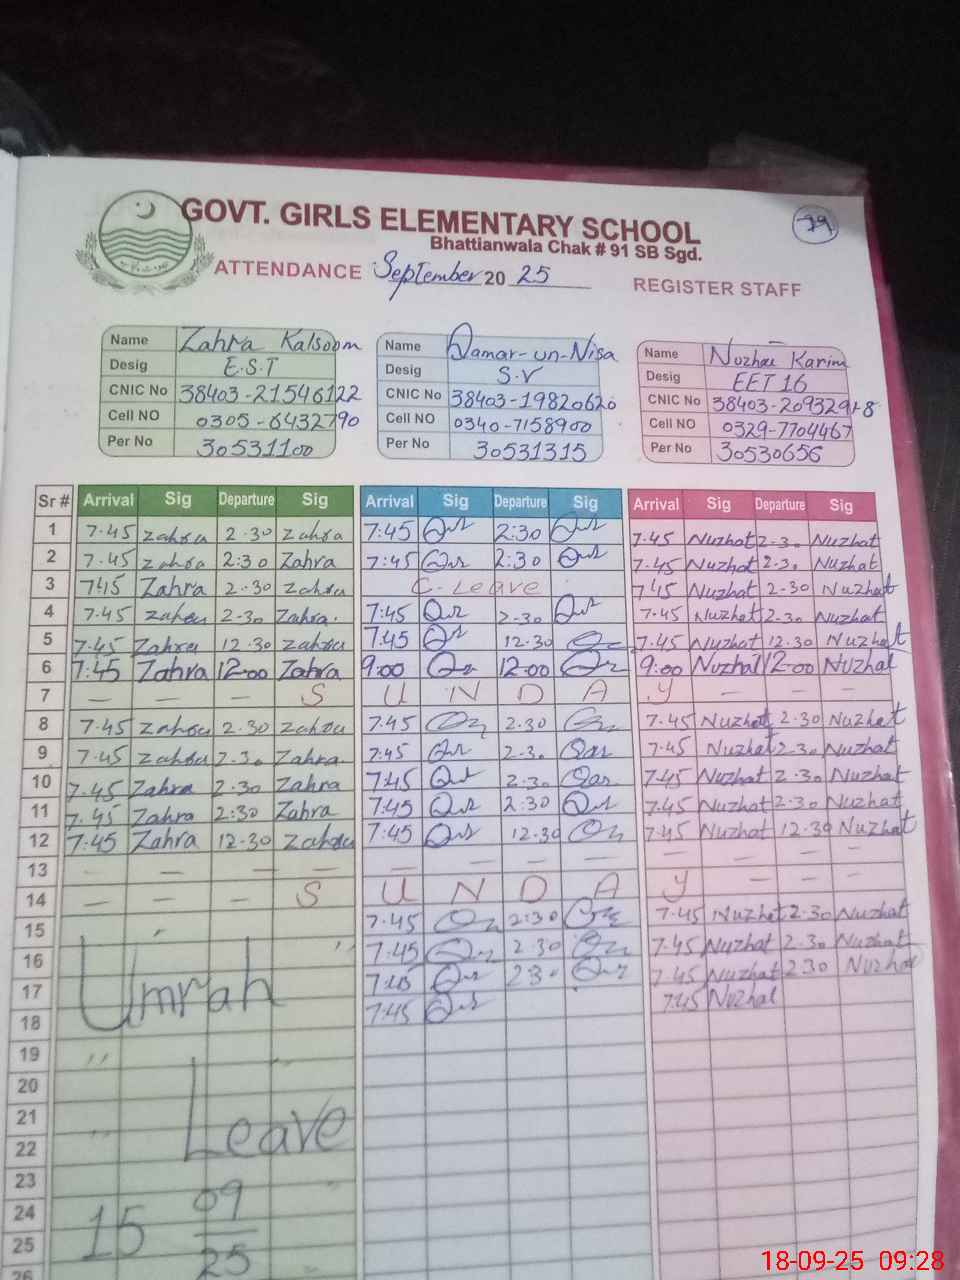 GOVT. GIRLS ELEMENTARY SCHOOL 79
Bhattianwala Chak # 91 SB Sgd.
ATTENDANCE September 20 25 REGISTER STAFF
Name Zahra Kalsoom Name Qamar-un-Nisa Name Nuzhat Karim
Desig E.S.T Desig S.V Desig EET 16
CNIC No 38403-21546122 CNIC No 38403-19820620 CNIC No 38403-2093291-8
Cell NO 0305-6432790 Cell NO 0340-7158900 Cell NO 0329-7704467
Per No 30531100 Per No 30531315 Per No 30530656
Sr # Arrival Sig Departure Sig Arrival Sig Departure Sig Arrival Sig Departure Sig
1 7-45 Zahra 2-30 Zahra 7:45 2:30 7-45 Nuzhat 2-30 Nuzhat
2 7-45 Zahra 2:30 Zahra 7:45 2:30 7-45 Nuzhat 2-30 Nuzhat
3 7:45 Zahra 2-30 Zahra C-Leave 7:45 Nuzhat 2-30 Nuzhat
4 7-45 Zahra 2-30 Zahra 7:45 2-30 7-45 Nuzhat 2-30 Nuzhat
5 7-45 Zahra 12-30 Zahra 7:45 12-30 7-45 Nuzhat 12-30 Nuzhat
6 7:45 Zahra 12-00 Zahra 9:00 12:00 9:00 Nuzhat 12-00 Nuzhat
7 — — — S U N D A Y — — —
8 7-45 Zahra 2-30 Zahra 7.45 2-30 7-45 Nuzhat 2-30 Nuzhat
9 7-45 Zahra 2-30 Zahra 7:45 2-30 7-45 Nuzhat 2-30 Nuzhat
10 7-45 Zahra 2-30 Zahra 7:45 2-30 7-45 Nuzhat 2-30 Nuzhat
11 7-45 Zahra 2:30 Zahra 7:45 2:30 7-45 Nuzhat 2-30 Nuzhat
12 7:45 Zahra 12-30 Zahra 7:45 12-30 7-45 Nuzhat 12-30 Nuzhat
13 — — — — — — — — — — — —
14 — — — S U N D A Y — — —
15 7-45 2:30 7-45 Nuzhat 2-30 Nuzhat
16 7:45 2-30 7-45 Nuzhat 2-30 Nuzhat
17 Umrah 7:45 2:30 7-45 Nuzhat 2:30 Nuzhat
18 7:45 7:45 Nuzhat
19 "
20
21
22 " Leave
23
24 15 09
25 25
26
18-09-25 09:28